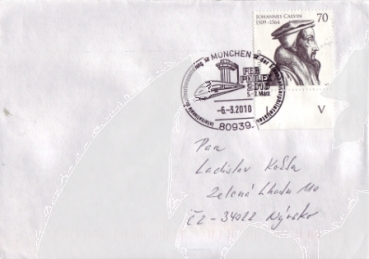 JOHANNES CALVIN
1509-1564
70
MÜNCHEN
2010
-6.-3.2010
80939
V
Pan
Ladislav
Zelená Lhota 110
CZ-34022 Nýrsko